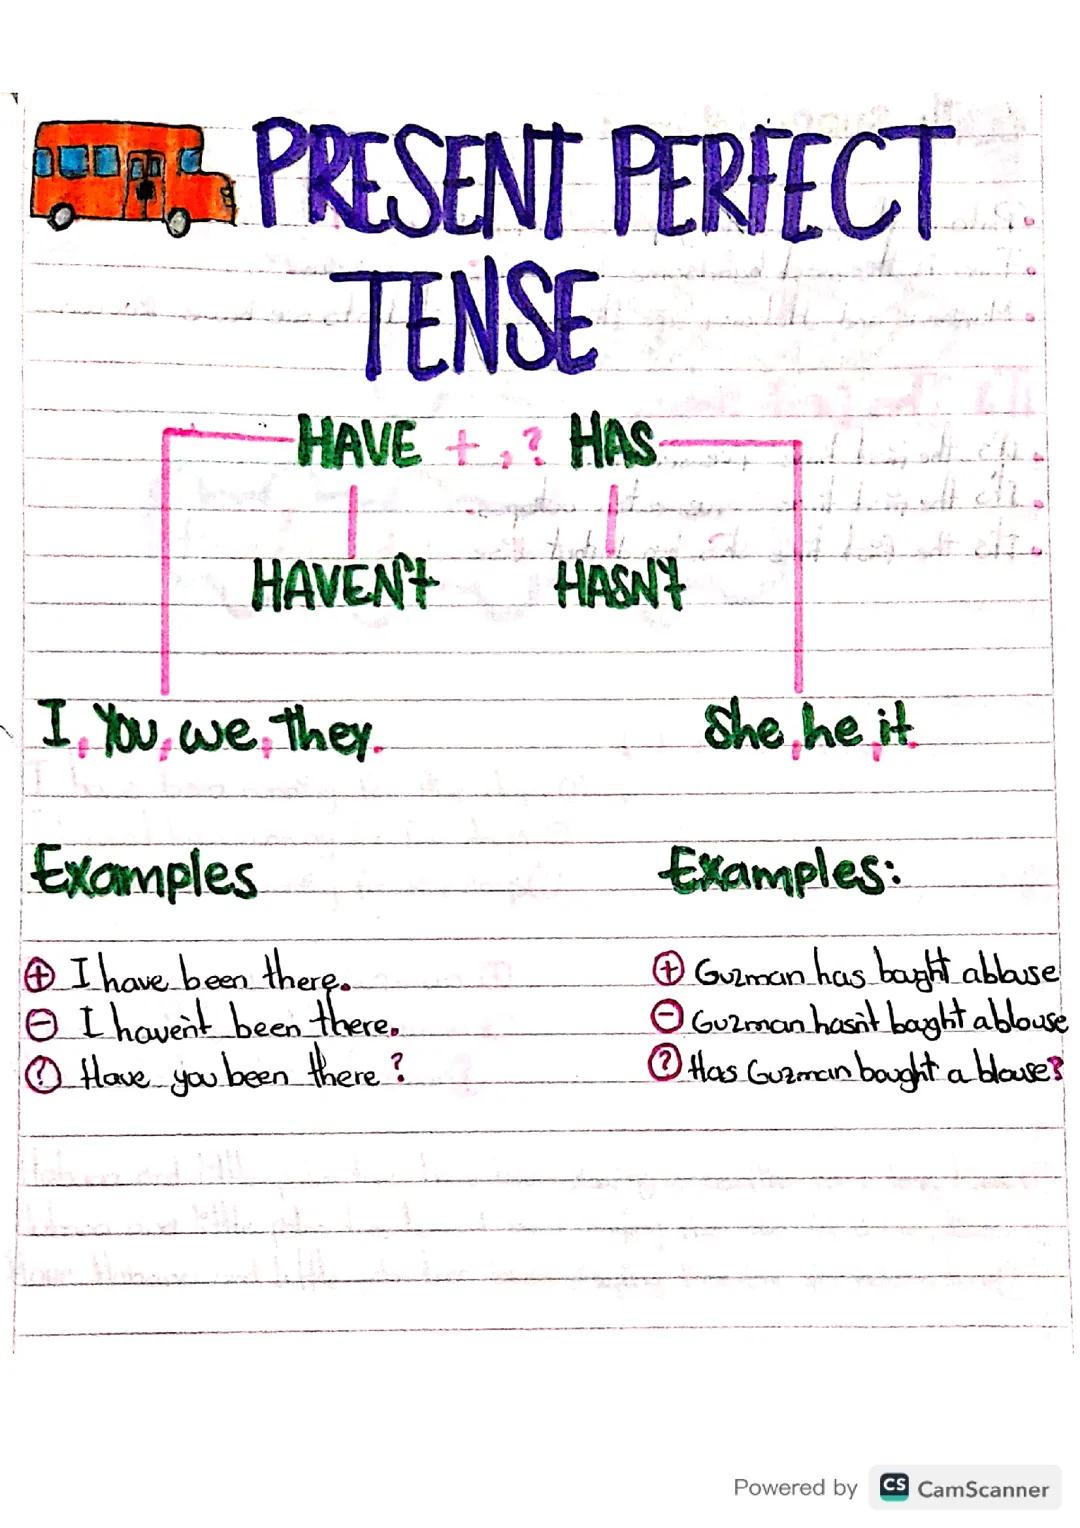 PRESENT PERFECT
TENSE
HAVE + , ? HAS
HAVEN't HASN't
I, You, we, they. She, he, it.
Examples Examples:
+ I have been there. + Guzman has bought a blouse
- I haven't been there. - Guzman hasn't bought a blouse
? Have you been there? ? Has Guzman bought a blouse?
Powered by CS CamScanner